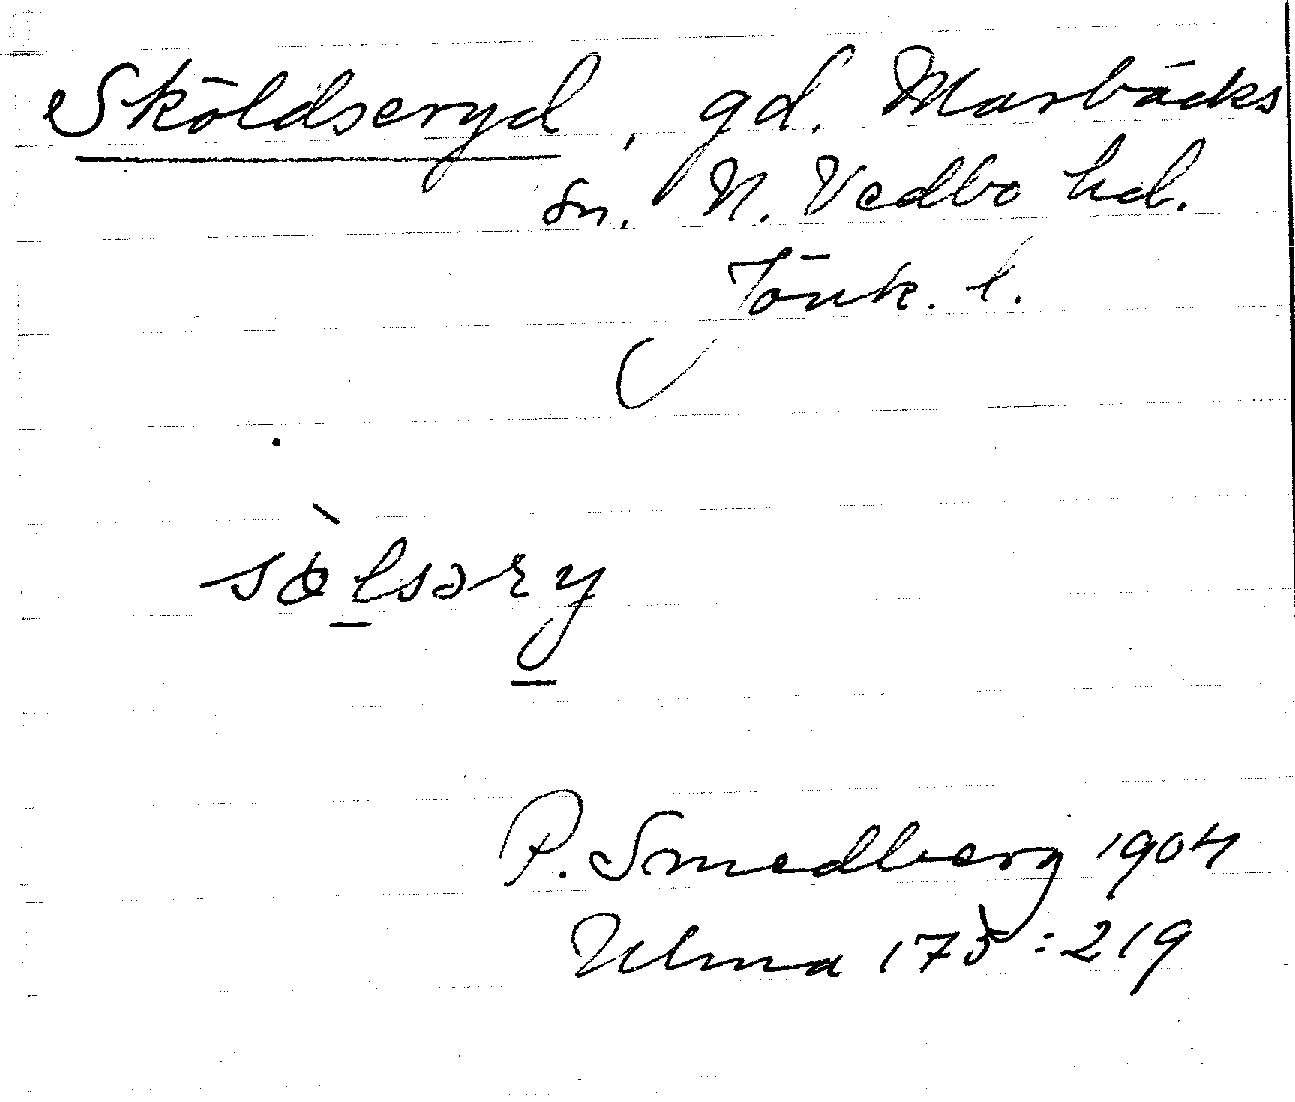 Sköldseryd, gd. Marbäcks
sn. N. Vedbo hd.
Jönk. l.
P. Smedberg 1904
Ulma 175:219